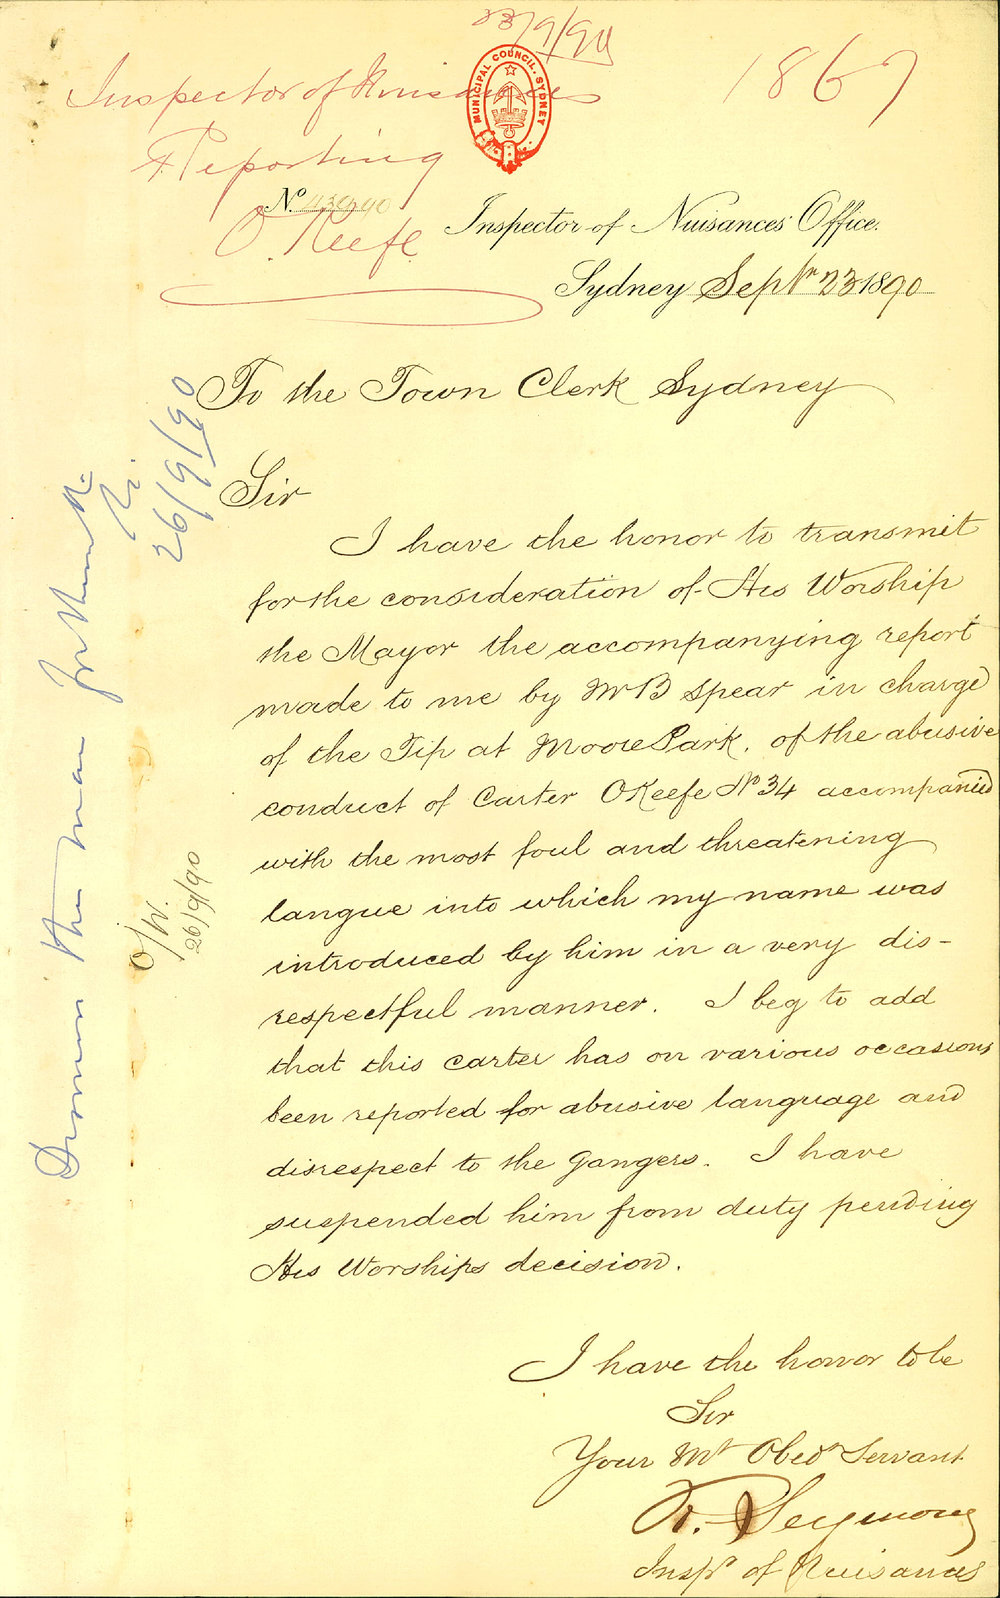 23/9/90
Inspector of Nuisances
Reporting
O'Keefe
1867
MUNICIPAL COUNCIL. SYDNEY
No. 439/90
Inspector of Nuisances' Office.
Sydney Septr 23 1890
To the Town Clerk Sydney
Sir
I have the honor to transmit
for the consideration of His Worship
the Mayor the accompanying report
made to me by Mr B Spear in charge
of the Tip at Moore Park, of the abusive
conduct of Carter OKeefe No 34 accompanied
with the most foul and threatening
langue into which my name was
introduced by him in a very dis-
respectful manner. I beg to add
that this carter has on various occasions
been reported for abusive language and
disrespect to the Gangers. I have
suspended him from duty pending
His Worships decision.
I have the honor to be
Sir
Your Mt Obedt Servant
R. Seymour
Inspr of Nuisances
Dismiss the man forthwith.
26/9/90
O/W.
26/9/90